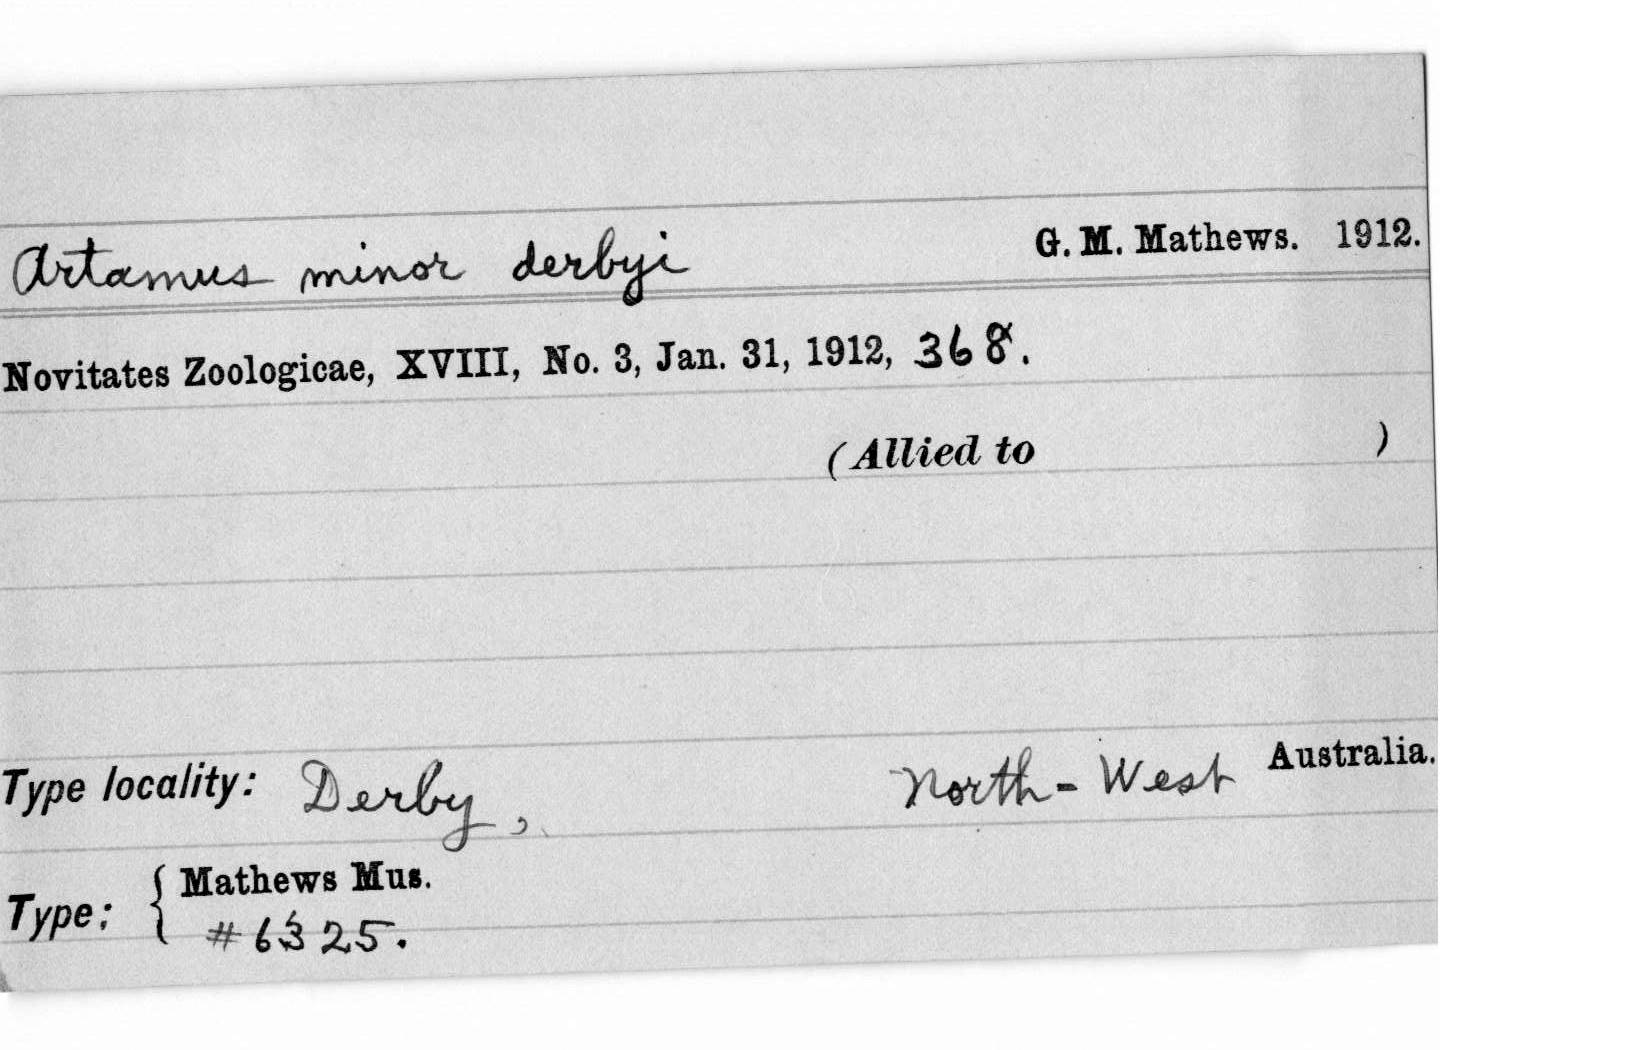 Artamus minor derbyi G. M. Mathews. 1912.
Novitates Zoologicae, XVIII, No. 3, Jan. 31, 1912, 368.
(Allied to )
Type locality: Derby, North-West Australia.
Type: { Mathews Mus.
#6325.